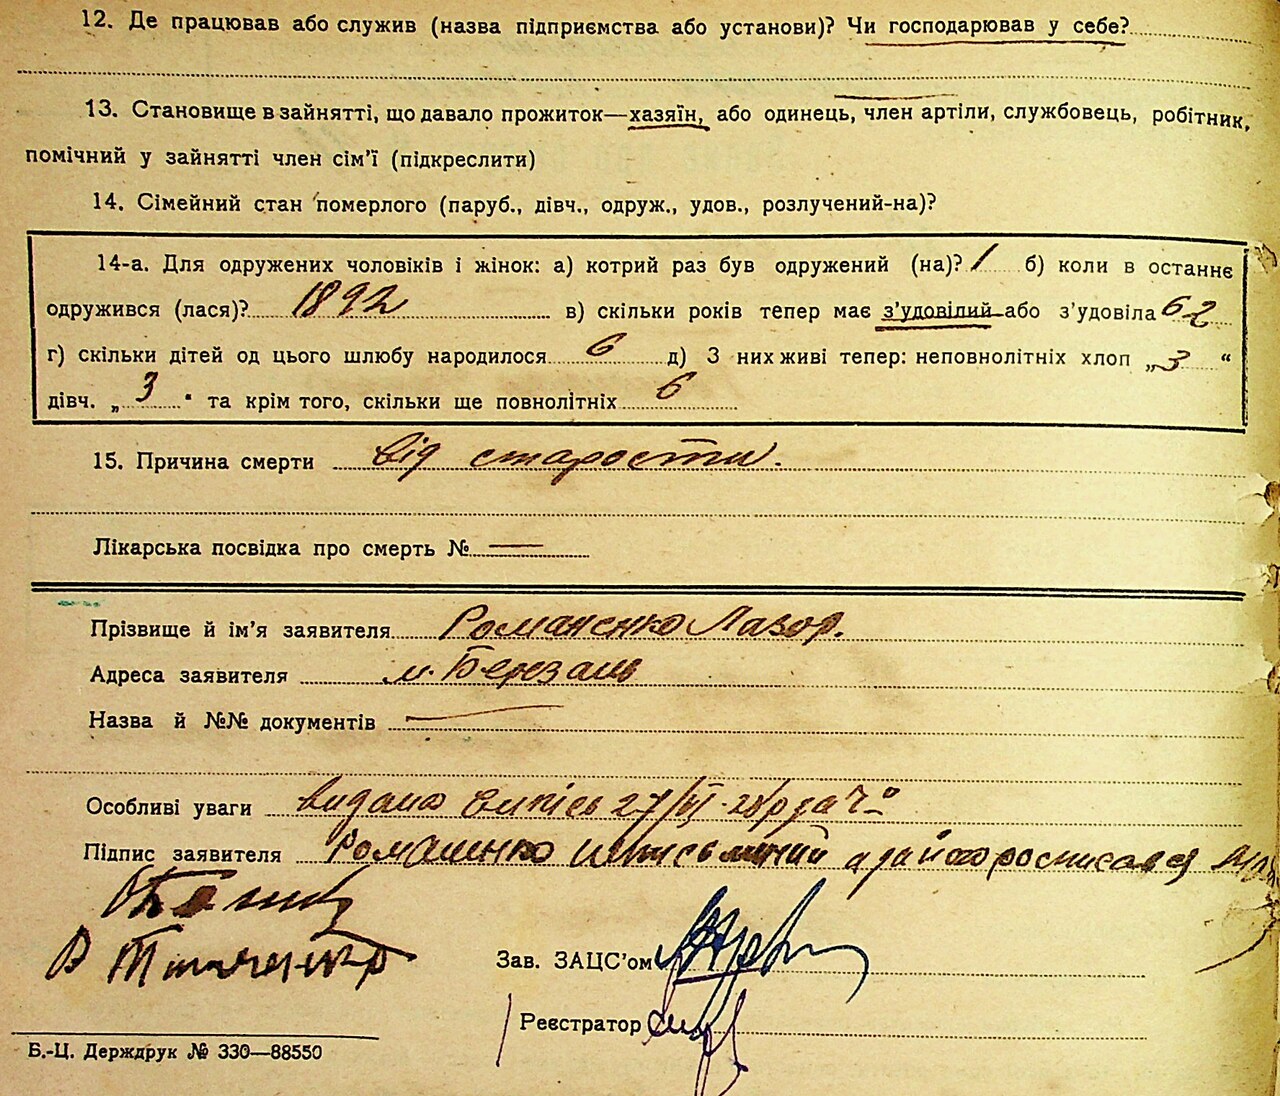 12. Де працював або служив (назва підприємства або установи)? Чи господарював у себе?
13. Становище в зайнятті, що давало прожиток—хазяїн, або одинець, член артіли, службовець, робітник,
помічний у зайнятті член сім'ї (підкреслити)
14. Сімейний стан померлого (паруб., дівч., одруж., удов., розлучений-на)?
14-а. Для одружених чоловіків і жінок: а) котрий раз був одружений (на)? 1 б) коли в останнє
одружився (лася)? 1892 в) скільки років тепер має з'удовілий або з'удовіла 62
г) скільки дітей од цього шлюбу народилося 6 д) З них живі тепер: неповнолітніх хлоп „3“
дівч. „3" та крім того, скільки ще повнолітніх 6
15. Причина смерти від старости.
Лікарська посвідка про смерть № —
Прізвище й ім'я заявителя Романенко Лазор.
Адреса заявителя м. Березань
Назва й №№ документів —
Особливі уваги видано випісь
Підпис заявителя Романенко
В Ткаченко
Зав. ЗАЦС'ом
Реєстратор
Б.-Ц. Держдрук № 330—88550